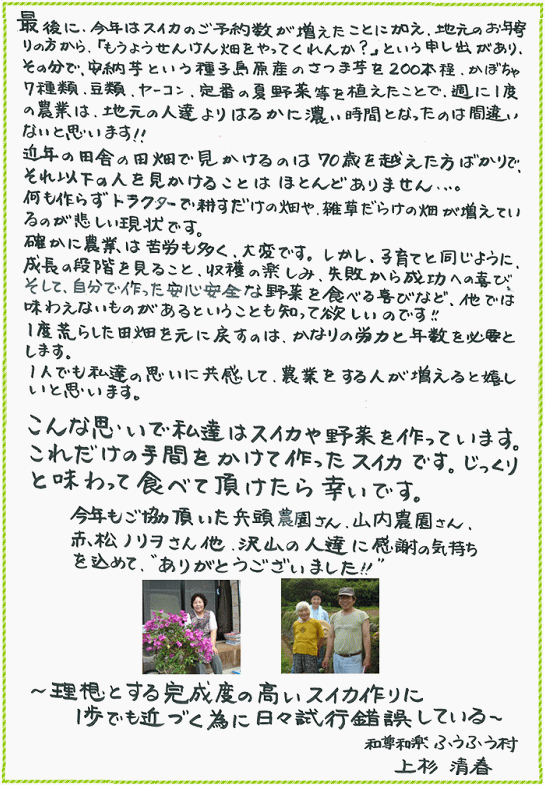 最後に、今年はスイカのご予約数が増えたことに加え、地元のお年寄
りの方から、「もうようせんけん畑をやってくれんか？」という申し出があり、
その分で、安納芋という種子島原産のさつま芋を200本程、かぼちゃ
7種類、豆類、ヤーコン、定番の夏野菜等を植えたことで、週に1度
の農業は、地元の人達よりはるかに濃い時間となったのは間違い
ないと思います!!
近年の田舎の田畑で見かけるのは70歳を越えた方ばかりで、
それ以下の人を見かけることはほとんどありません…。
何も作らずトラクターで耕すだけの畑や、雑草だらけの畑が増えてい
るのが悲しい現状です。
確かに農業は苦労も多く、大変です。しかし、子育てと同じように、
成長の段階を見ること、収穫の楽しみ、失敗から成功への喜び、
そして、自分で作った安心安全な野菜を食べる喜びなど、他では
味わえないものがあるということも知って欲しいのです!!
1度荒らした田畑を元に戻すのは、かなりの労力と年数を必要と
します。
1人でも私達の思いに共感して、農業をする人が増えると嬉し
いと思います。
こんな思いで私達はスイカや野菜を作っています。
これだけの手間をかけて作ったスイカです。じっくり
と味わって食べて頂けたら幸いです。
今年もご協頂いた兵頭農園さん、山内農園さん、
赤松ノリヲさん他、沢山の人達に感謝の気持ち
を込めて、"ありがとうございました!!"
～理想とする完成度の高いスイカ作りに
1歩でも近づく為に日々試行錯誤している～
和尊和楽 ふうふう村
上杉 清春